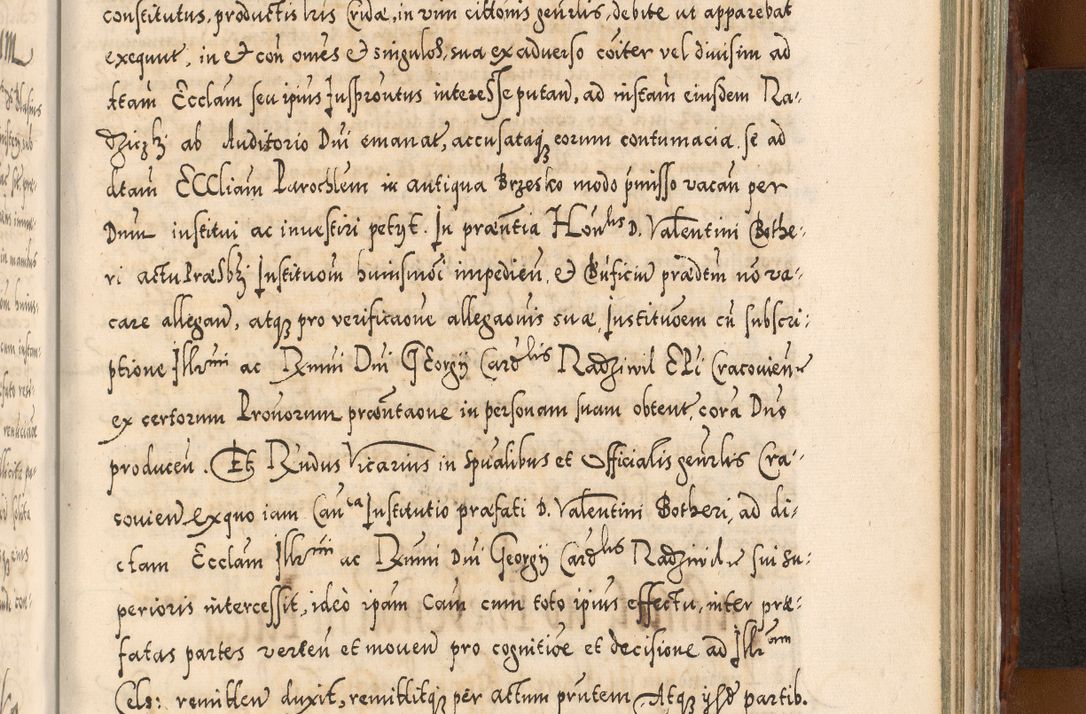 constitutus, productis lris Cridæ, in vim cittonis genrlis, debite ut apparebat
exequut, in et con omes et singulos, sua ex adverso coiter vel divisim ad
dtam Ecclam seu ipius Juspntus interesse putan, ad instam eiusdem Ra-
dziczkj ab Auditorio Dni emanat, accusataq eorum contumacia se ad
dtam ECCliam Parochlem in antiqua Brzesko modo pmisso vacan per
Dnm institui ac investiri petyt. In præntia Honlis D. Valentini Bothe-
ri actu Præsbj Institvoin huiusmoi impedien, et Buficiu prædtm no va-
care allegan, atq pro verificaone allegaonis suæ, Institvoem cu subscri-
ptione Jllrmi ac Rmni Dni GEorgy Cardlis Radziwil EPi Cracovien
ex certorum Provorum præntaone in personam suam obtent, cora Dno
producen. Et Rndus Vicarius in Spualibus et Officialis genrlis Cra-
covien ex quo iam Canca Institutio præfati D. Valentini Botheri, ad di-
ctam Ecclam Jllrmi ac Rmni Dni Georgy Cardlis Radziwil sui su-
perioris intercessit, ideo ipam Cam cum toto ipius effectu, inter præ-
fatas partes verten et moven pro cognitioe et decisione ad Jllrmam
Cels: remitten duxit, remittitq per attum prntem Atq ysd partib.